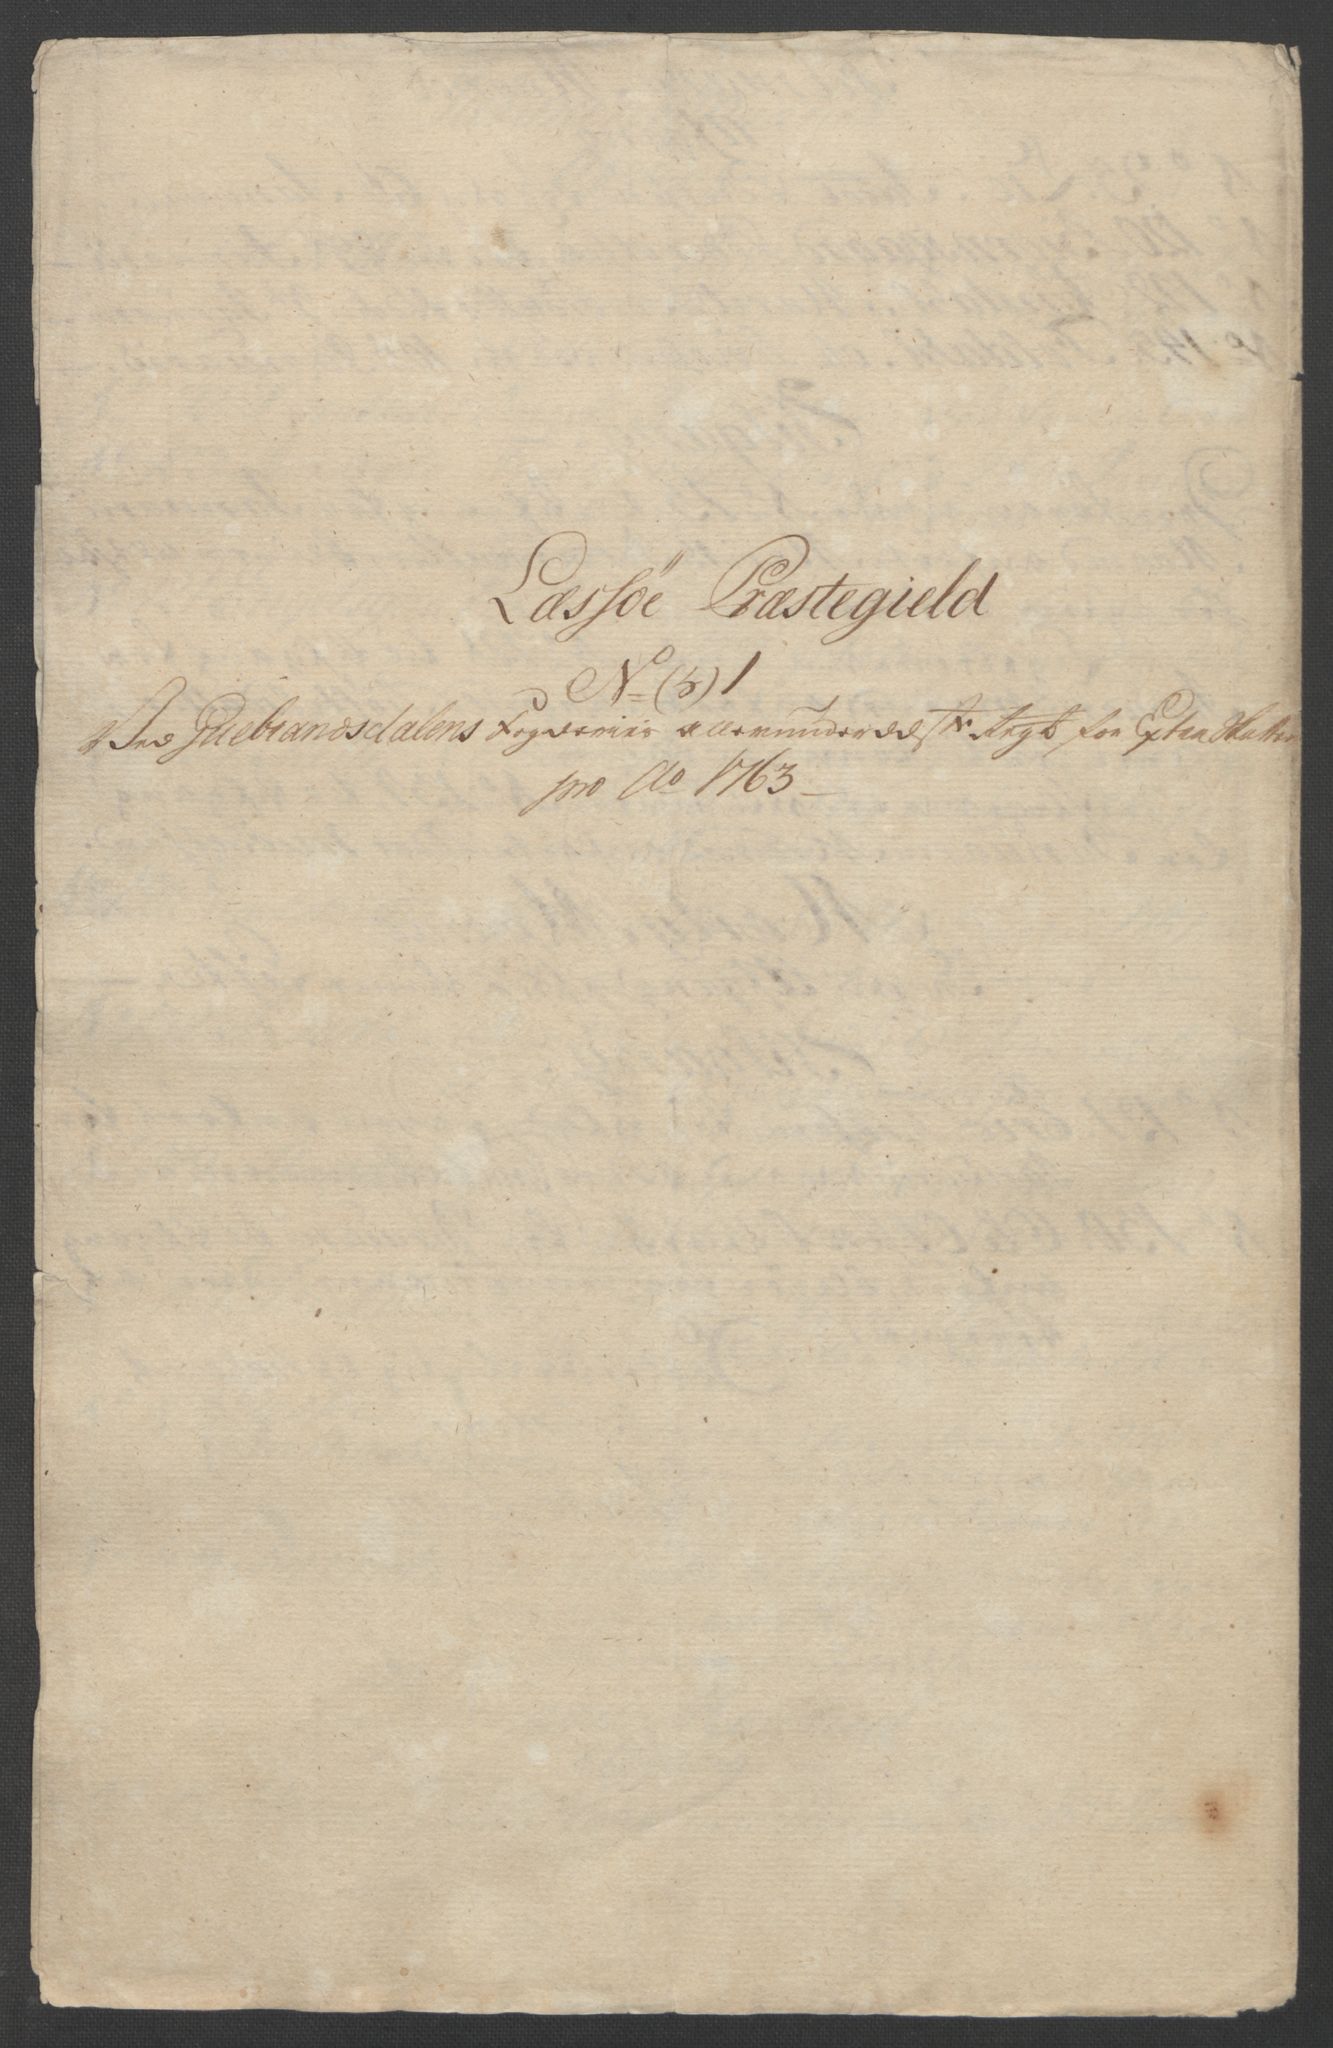 Læssøe Præstegield
No (5) 1
Ved Guebrandsdalens Fogderies allerunderdst Regb for Extra Skatten
pro Ao 1763